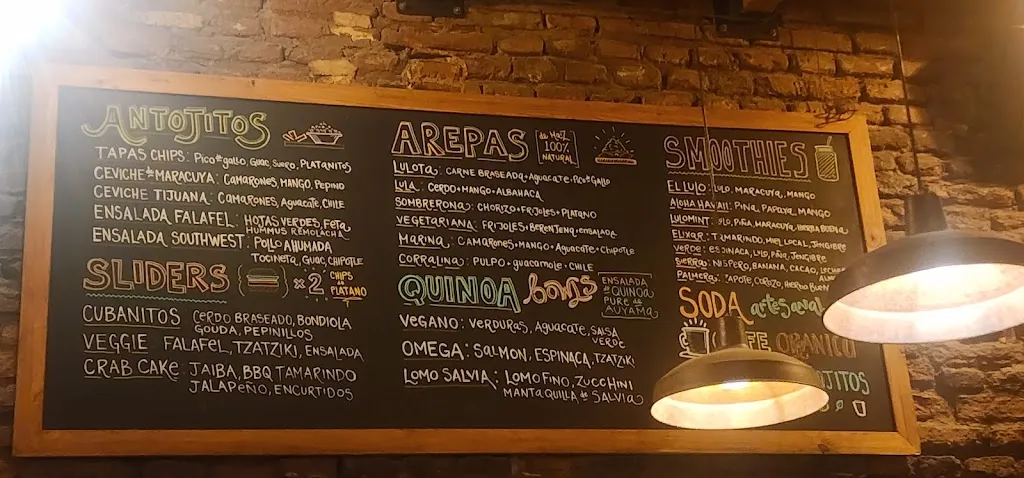 ANTOJITOS
TAPAS CHIPS: PICO de GALLO, GUAC, SUERO, PLATANITOS
CEVICHE de MARACUYA: CAMARONES, MANGO, PEPINO
CEVICHE TIJUANA: CAMARONES, AGUACATE, CHILE
ENSALADA FALAFEL: HOJAS VERDES, FETA,
HUMMUS REMOLACHA
ENSALADA SOUTHWEST: POLLO AHUMADA
TOCINETA, GUAC, CHIPOTLE
SLIDERS x2 CHIPS de PLATANO
CUBANITOS CERDO BRASEADO, BONDIOLA
GOUDA, PEPINILLOS
VEGGIE FALAFEL, TZATZIKI, ENSALADA
CRAB CAKE: JAIBA, BBQ TAMARINDO
JALAPEÑO, ENCURTIDOS
AREPAS de MAIZ 100% NATURAL
LULOTA: CARNE BRASEADA+AGUACATE+PICO de GALLO
LULA: CERDO+MANGO+ALBAHACA
SOMBRERONA: CHORIZO+FRIJOLES+PLATANO
VEGETARIANA: FRIJOLES+BERENTENG+ENSALADA
MARINA: CAMARONES+MANGO+AGUACATE+CHIPOTLE
CORRALINA: PULPO+GUACAMOLE+CHILE
QUINOA bowls ENSALADA
de QUINOA
PURE de
AUYAMA
VEGANO: VERDURAS, AGUACATE, SALSA
VERDE
OMEGA: SALMON, ESPINACA, TZATZIKI
LOMO SALVIA: LOMO FINO, ZUCCHINI
MANTAQUILLA de SALVIA
SMOOTHIES
EL LULO: LULO, MARACUYA, MANGO
ALOHA HAVAII: PIÑA, PAPAYA, MANGO
LULOMINT: LULO, PIÑA, MARACUYA, HIERBA BUENA
ELIXAR: TAMARINDO, MIEL LOCAL, JENGIBRE
VERDE: ESPINACA, LULO, PIÑA, JENGIBRE
SIERRA: NISPERO, BANANA, CACAO, LECHE
PALMERA: ZAPOTE, COROZO, HIERBA BUENA
SODA artesanal
ORGANICO